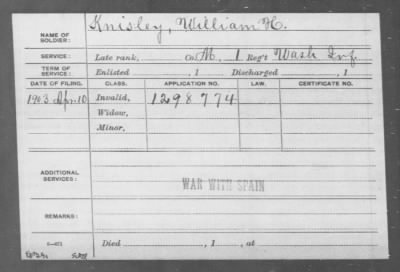 NAME OF SOLDIER: Knisley, William H.
SERVICE: Late rank, Co. M. 1 Reg't Wash Inf.
TERM OF SERVICE: Enlisted , 1 Discharged , 1
DATE OF FILING. CLASS. APPLICATION NO. LAW. CERTIFICATE NO.
1903 Apr 10 Invalid, 1298774
Widow,
Minor,
ADDITIONAL SERVICES: WAR WITH SPAIN
REMARKS:
Died , 1 , at